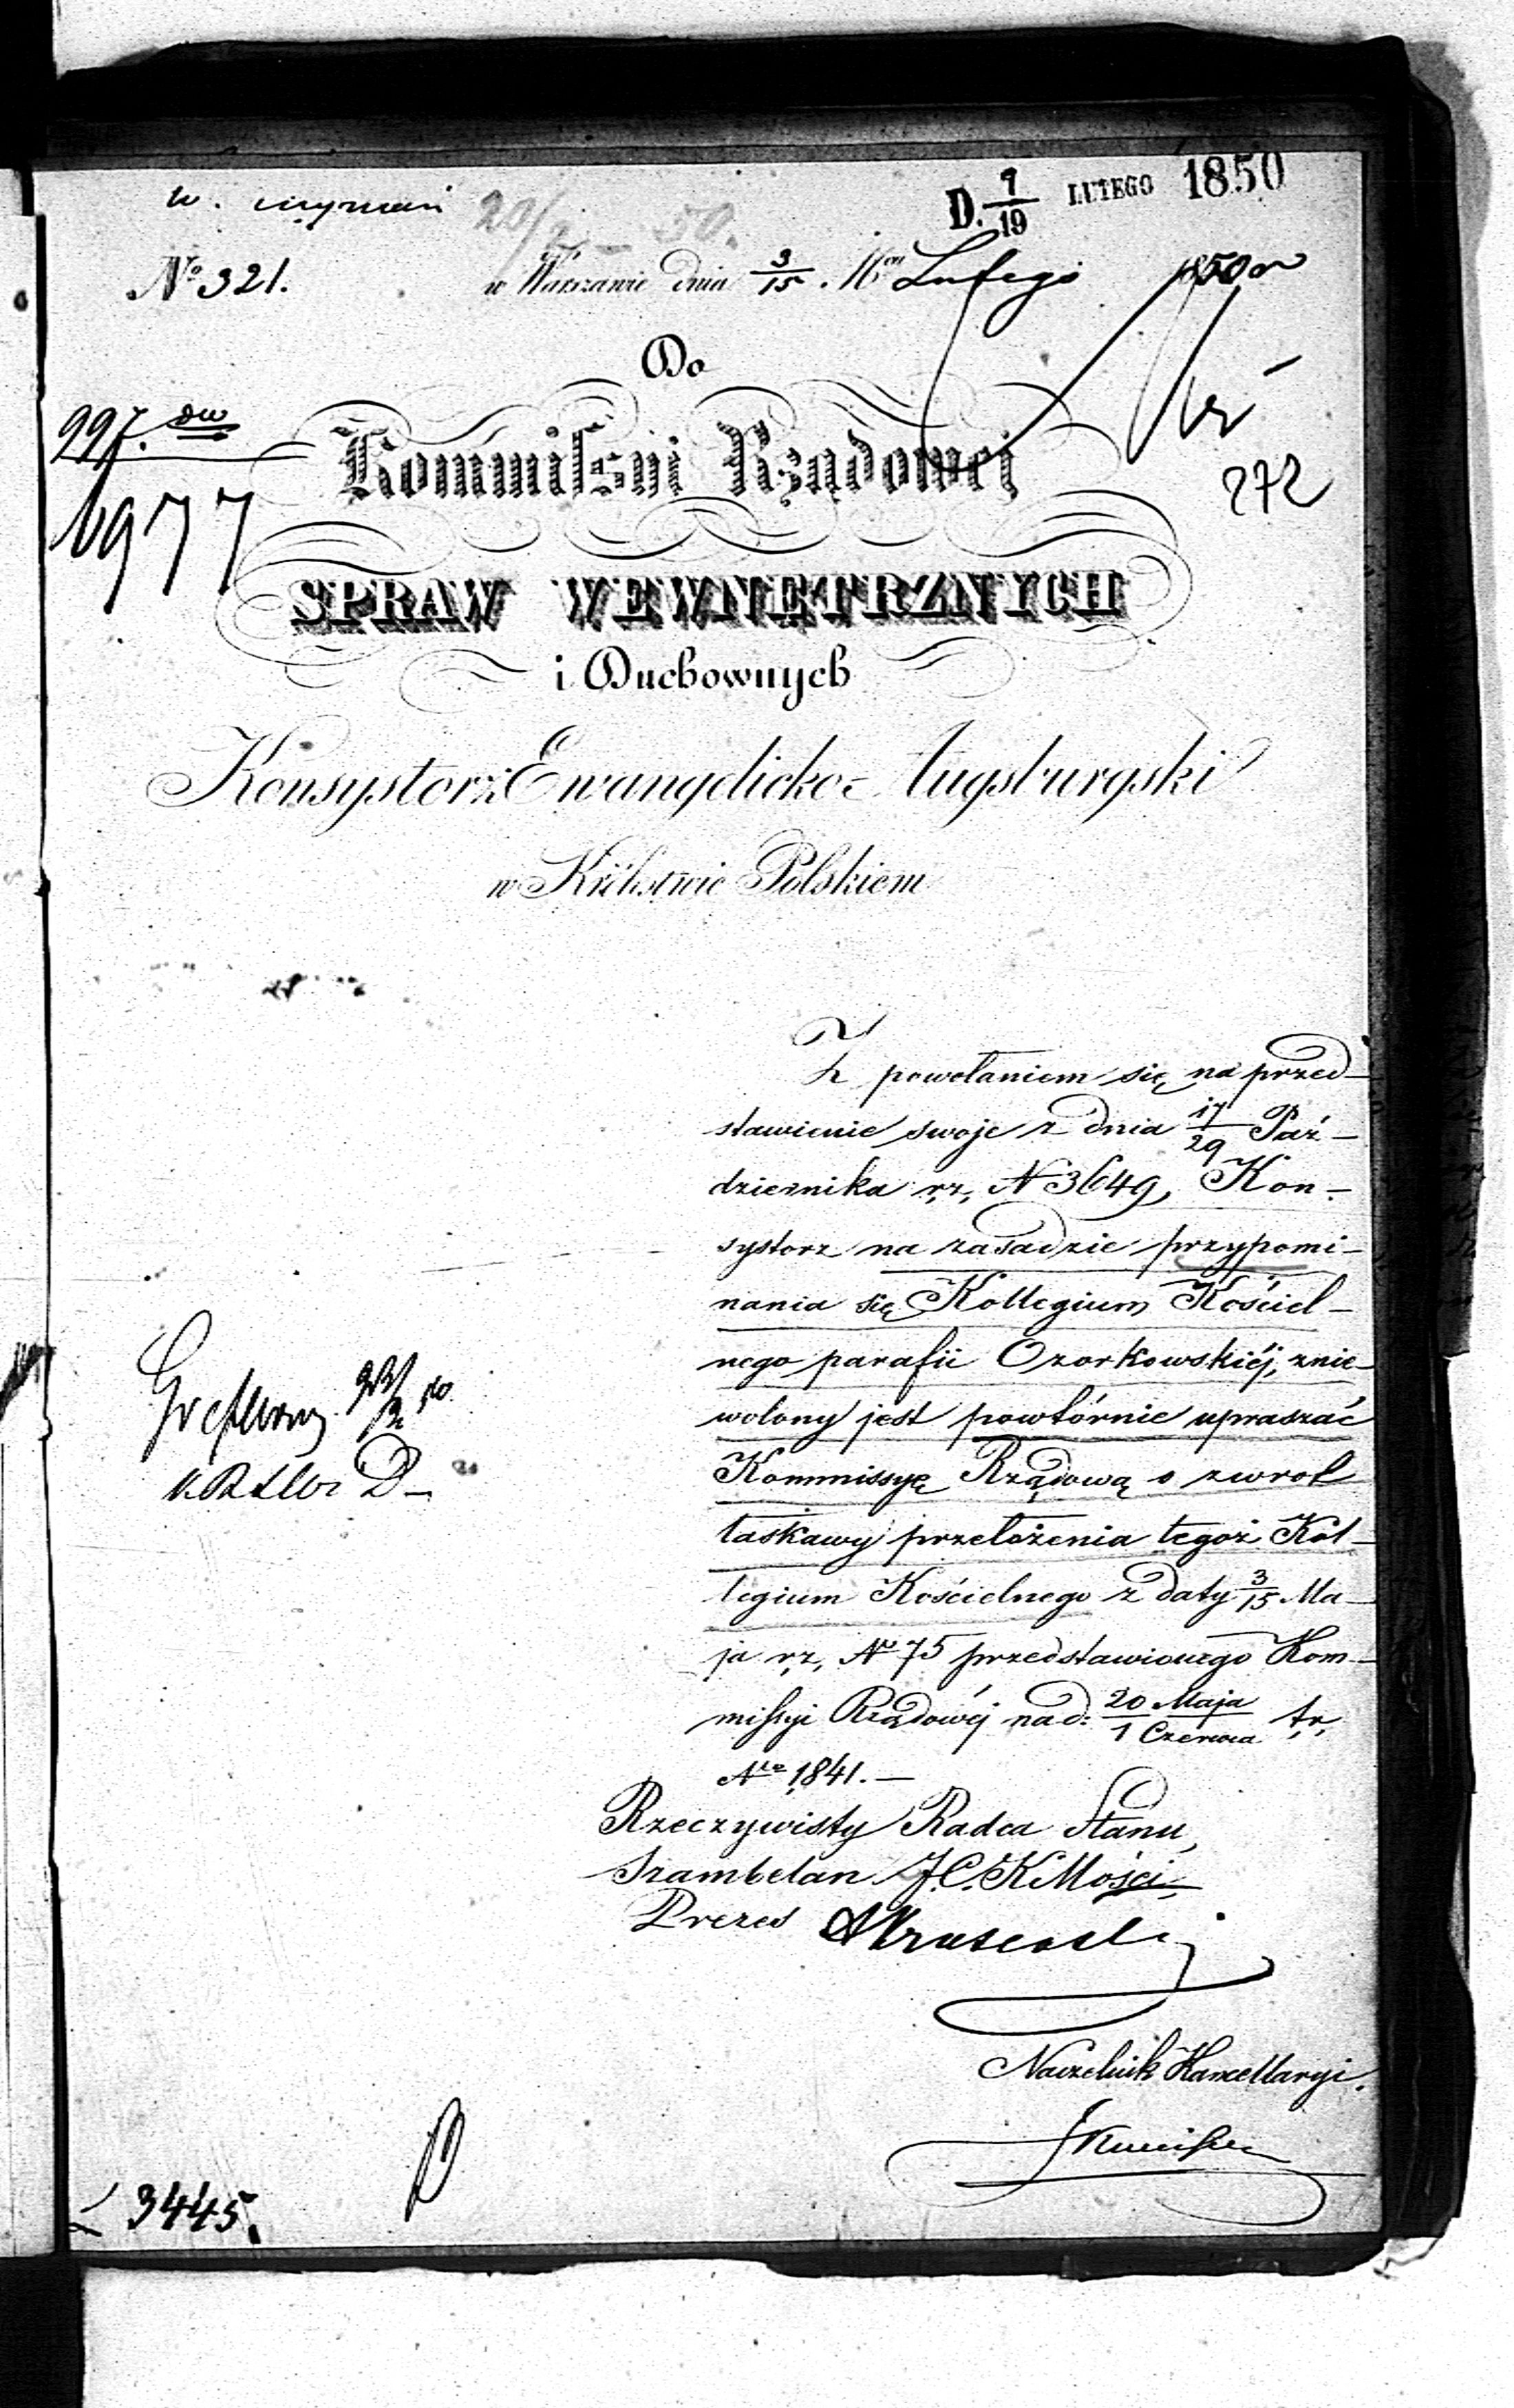 D. 7/19 LUTEGO 1850
20/2 50.
No 321.
w Warszawie dnia 3/15 Mca Lutego 1850 r
Do
997.
1977
Kommissyi Rządowej
272
SPRAW WEWNĘTRZNYCH
i Duchownych
Konsystorz Ewangelicko-Augsburgski
w Królestwie Polskiem
Z powołaniem się na przed-
stawienie swoje z dnia 17/29 Paź-
dziernika r. z. N 3649, Kon-
systorz na zasadzie przypomi-
nania się Kollegium Kościel-
nego parafii Ozorkowskiéj, znie-
wolony jest powtórnie upraszać
Kommissyę Rządową o zwrot
łaskawy przełożenia tegoż Kol-
legium Kościelnego z daty 3/15 Ma-
ja r. z. No 75 przedstawionego Kom-
missyi Rządowéj nad: 20 Maja/1 Czerwca t. r.
Nro 1841. —
Rzeczywisty Radca Stanu,
Szambelan J. C. K Mości,
Prezes
Naczelnik Kancellaryi.
3445.